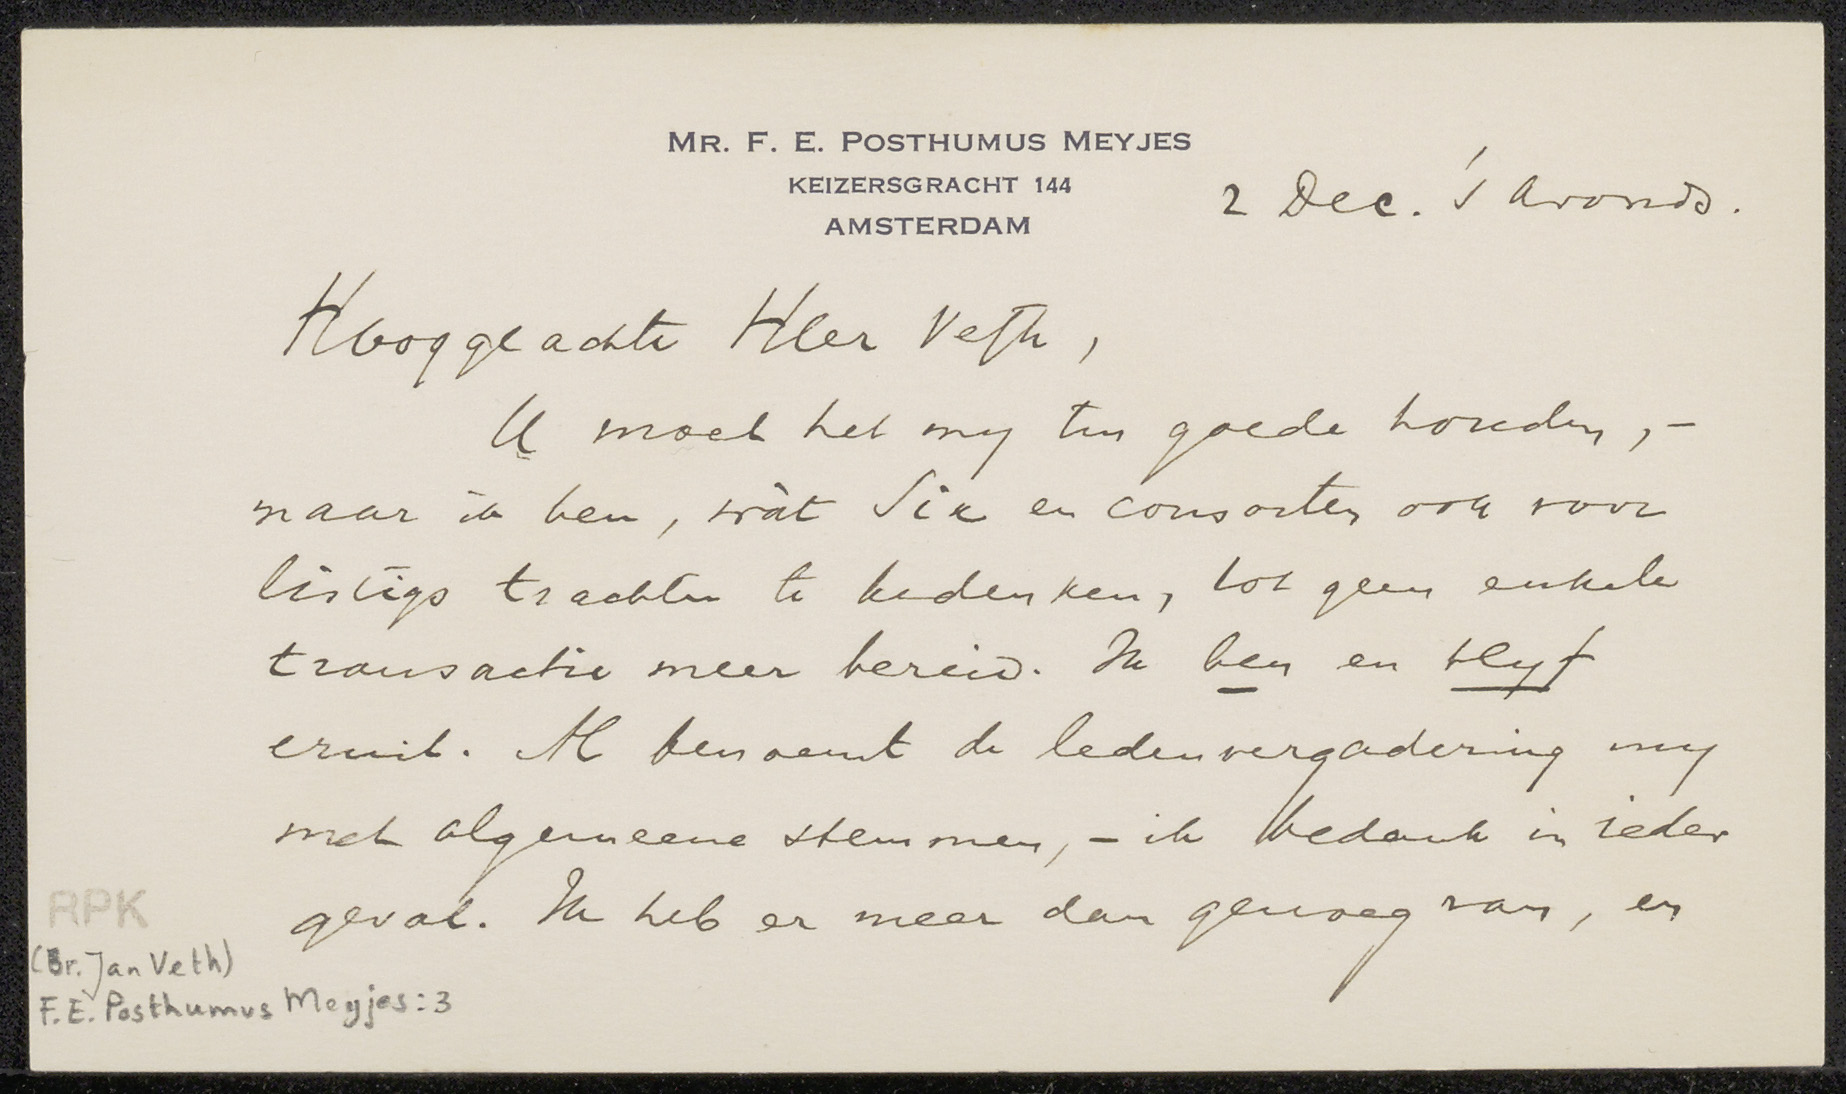 MR. F. E. POSTHUMUS MEYJES
KEIZERSGRACHT 144
AMSTERDAM
2 Dec. 's Avonds.
Hooggeachte Heer Veth,
U moet het my ten goede houden, –
maar ik ben, wàt Six en consorten ook voor
listigs trachten te bedenken, tot geen enkele
transactie meer bereid. Ik ben en blyf
eruit. Al benoemt de ledenvergadering my
met algemeene stemmen, – ik bedank in ieder
geval. Ik heb er meer dan genoeg van, en
RPK
(Br. Jan Veth)
F.E. Posthumus Meyjes: 3